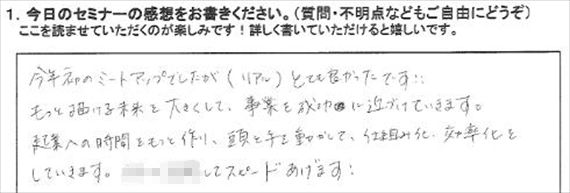 1. 今日のセミナーの感想をお書きください。(質問・不明点などもご自由にどうぞ)
ここを読ませていただくのが楽しみです!詳しく書いていただけると嬉しいです。
今年初のミートアップでしたが(リアル)とても良かったです!!
もっと描ける未来を大きくして、事業を成功に近づけていきます。
起業への時間をもっと作り、頭と手を動かして、仕組み化、効率化を
していきます。 してスピードあげます!